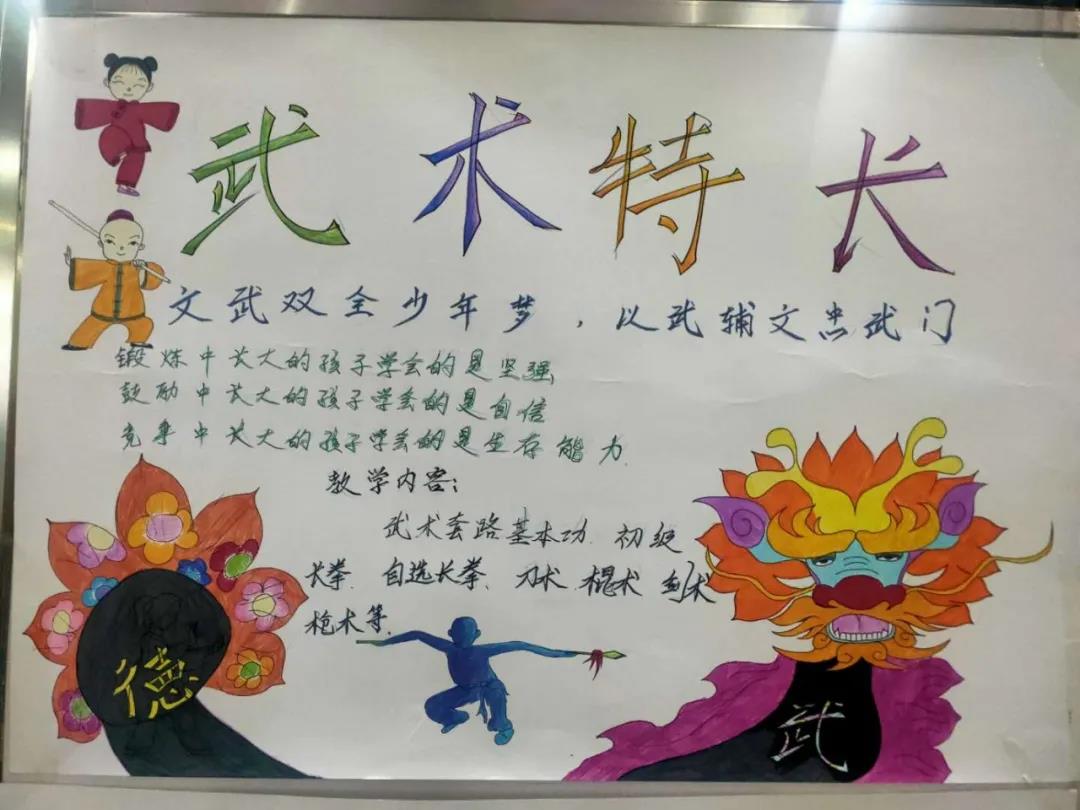 武术特长
文武双全少年梦，以武辅文忠武门
锻炼中长大的孩子学会的是坚强
鼓励中长大的孩子学会的是自信
竞争中长大的孩子学会的是生存能力.
教学内容：
武术套路基本功.初级
长拳、自选长拳、刀术.棍术 剑术
枪术等.
德
武